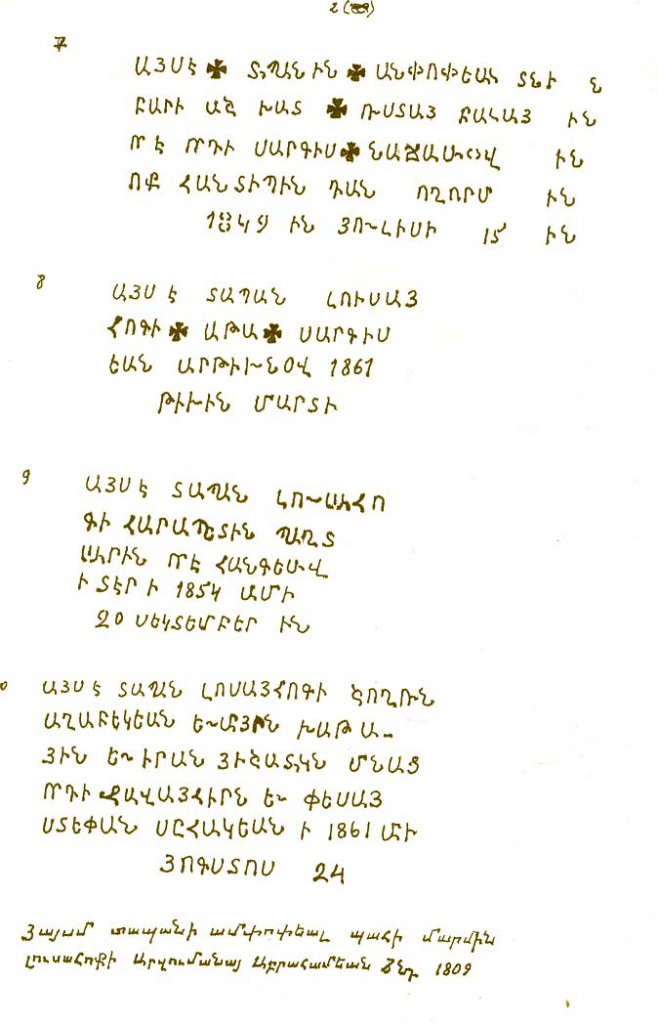 2
7
ԱՅՍ Է ✠ ՏՊԱՆ ԻՆ ✠ ԱՆՓՈՓԵԱԼ ՏՆԻ Ն
ԲԱՐԻ ԱՇ ԽԱՏ ✠ ՌՍՏԱՅ ՔԱԼԱՅ ԻՆ
ՈՐ Է ՈՐԴԻ ՍԱՐԳԻՍ ✠ ԻՆ
ՈՔ ՀԱՆՏԻՊԻՆ ԴԱՆ ՈՂՈՐՄ ԻՆ
ԻՆ ՅՈՒԼԻՍԻ 15 ԻՆ
8
ԱՅՍ Է ՏԱՊԱՆ ԼՈՒՍԱՅ
ՀՈԳԻ ✠ ԱԹԱ ✠ ՍԱՐԳԻՍ
ԵԱՆ ԱՐԹԻՒՆՕՎ 1861
ԹԻՒԻՆ ՄԱՐՏԻ
9
ԱՅՍ Է ՏԱՊԱՆ ԼՈՒՍԱՀՈ
ԳԻ ՀԱՐԱՊԵՏԻՆ ՊԱՂՏ
ԱՍԱՐԻՆ ՈՐ Է ՀԱՆԳԵԱՎ
Ի ՏԷՐ Ի 1854 ԱՄԻ
20 ՍԵԿՏԵՄԲԵՐ ԻՆ
ԱՅՍ Է ՏԱՊԱՆ ԼՈՍԱՅՀՈԳԻ ՇՈՂՌՆ
ԱՂԱԲԵԿԵԱՆ ԵՒ ԽԱԹԱ-
ՅԻՆ ԵՒ ԻՐԱՆ ՅԻՇԱՏԿՆ ՄՆԱՑ
ՈՐԴԻ ՋԱՎԱՅՀԻՐՆ ԵՒ ՓԵՍԱՅ
ՍՏԵՓԱՆ ՍԸՀԱԿԵԱՆ Ի 1861 ԱՄԻ
ՅՈԳՍՏՈՍ 24
Յայսմ տապանի ամփոփեալ պահի մարմին
լուսահոքի Աբրահամեան 1809